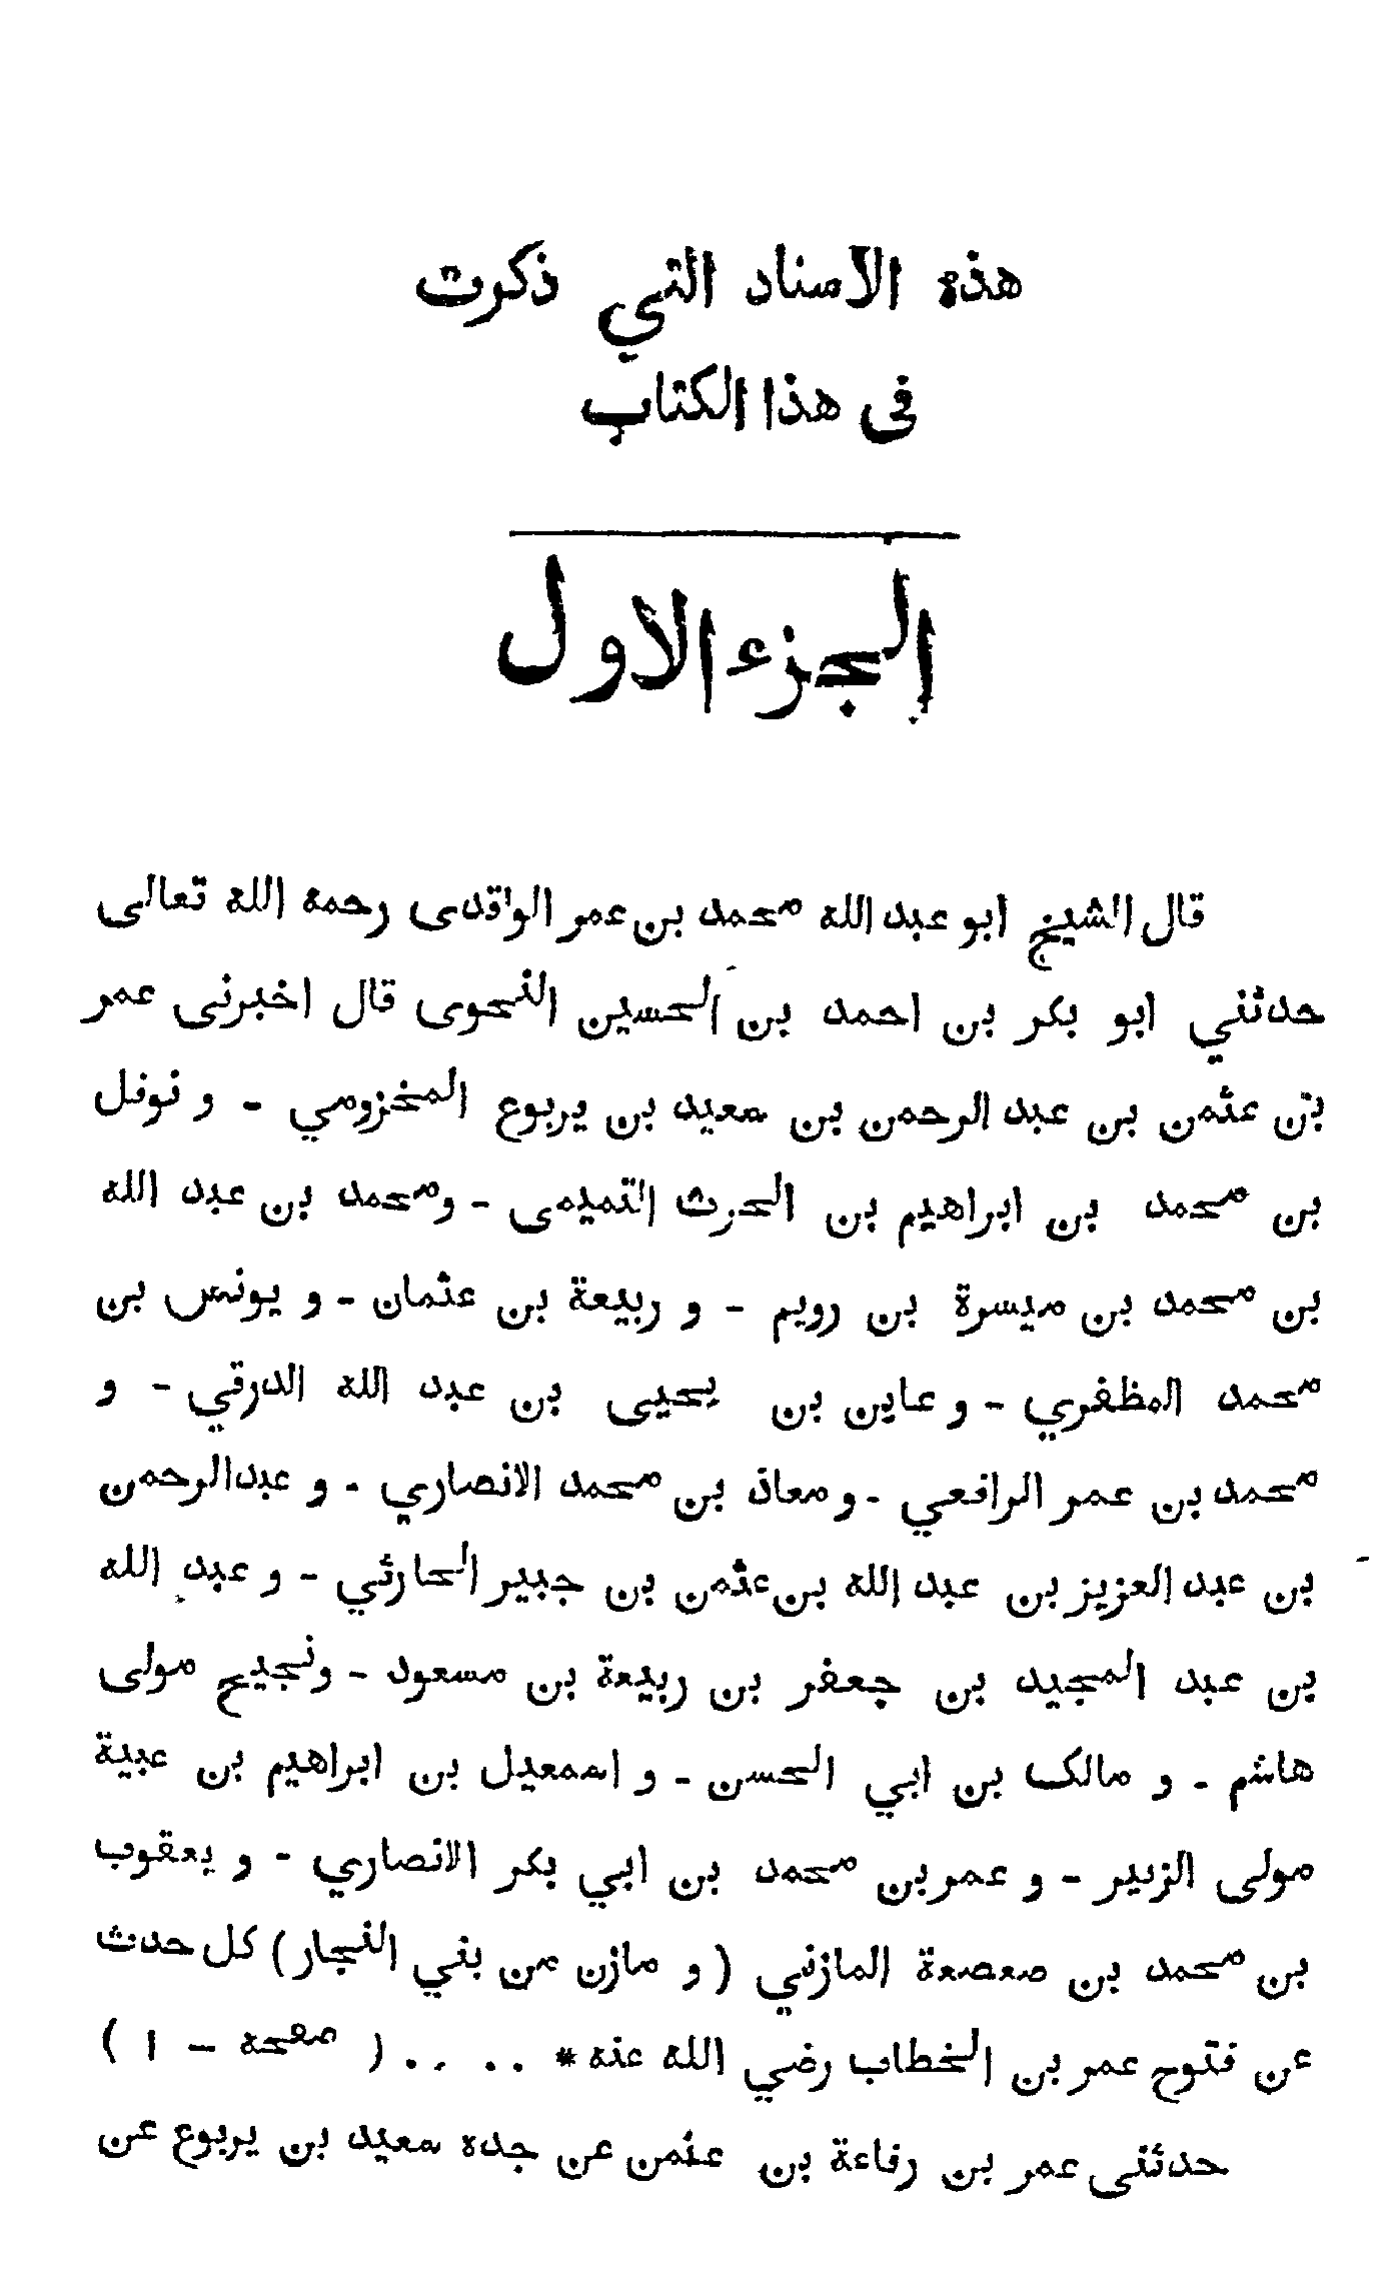 هذه الاسناد التي ذكرت
فى هذا الكتاب
الجزء الاول
قال الشيخ ابو عبد الله محمد بن عمر الواقدى رحمه الله تعالى
حدثني ابو بكر بن احمد بن الحسين النحوى قال اخبرنى عمر
بن عثمن بن عبد الرحمن بن سعيد بن يربوع المخزومي - و نوفل
بن محمد بن ابراهيم بن الحرث التميمى - ومحمد بن عبد الله
بن محمد بن ميسرة بن رويم - و ربيعة بن عثمان - و يونس بن
محمد المظفري - و عاين بن يحيى بن عبد الله الدرقي - و
محمد بن عمر الرافعي - و معاذ بن محمد الانصاري - و عبد الرحمن
بن عبد العزيز بن عبد الله بن عثمن بن جبير الحارثي - و عبد الله
بن عبد المجيد بن جعفر بن ربيعة بن مسعود - ونجيح مولى
هاشم - و مالك بن ابي الحسن - و اسمعيل بن ابراهيم بن عبية
مولى الزبير - و عمر بن محمد بن ابي بكر الانصاري - و يعقوب
بن محمد بن صعصعة المازني ( و مازن من بني النجار ) كل حدث
عن فتوح عمر بن الخطاب رضي الله عنه * .. .. ( صفحة - ١ )
حدثنى عمر بن رفاعة بن عثمن عن جده سعيد بن يربوع عن